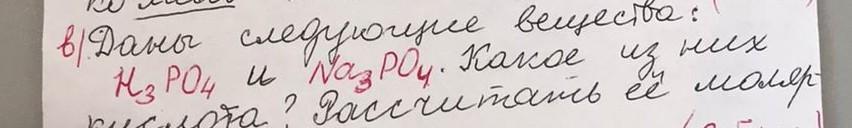 в) Даны следующие вещества:
H₃PO₄ и Na₃PO₄. Какое из них
кислота? Рассчитать её моляр-